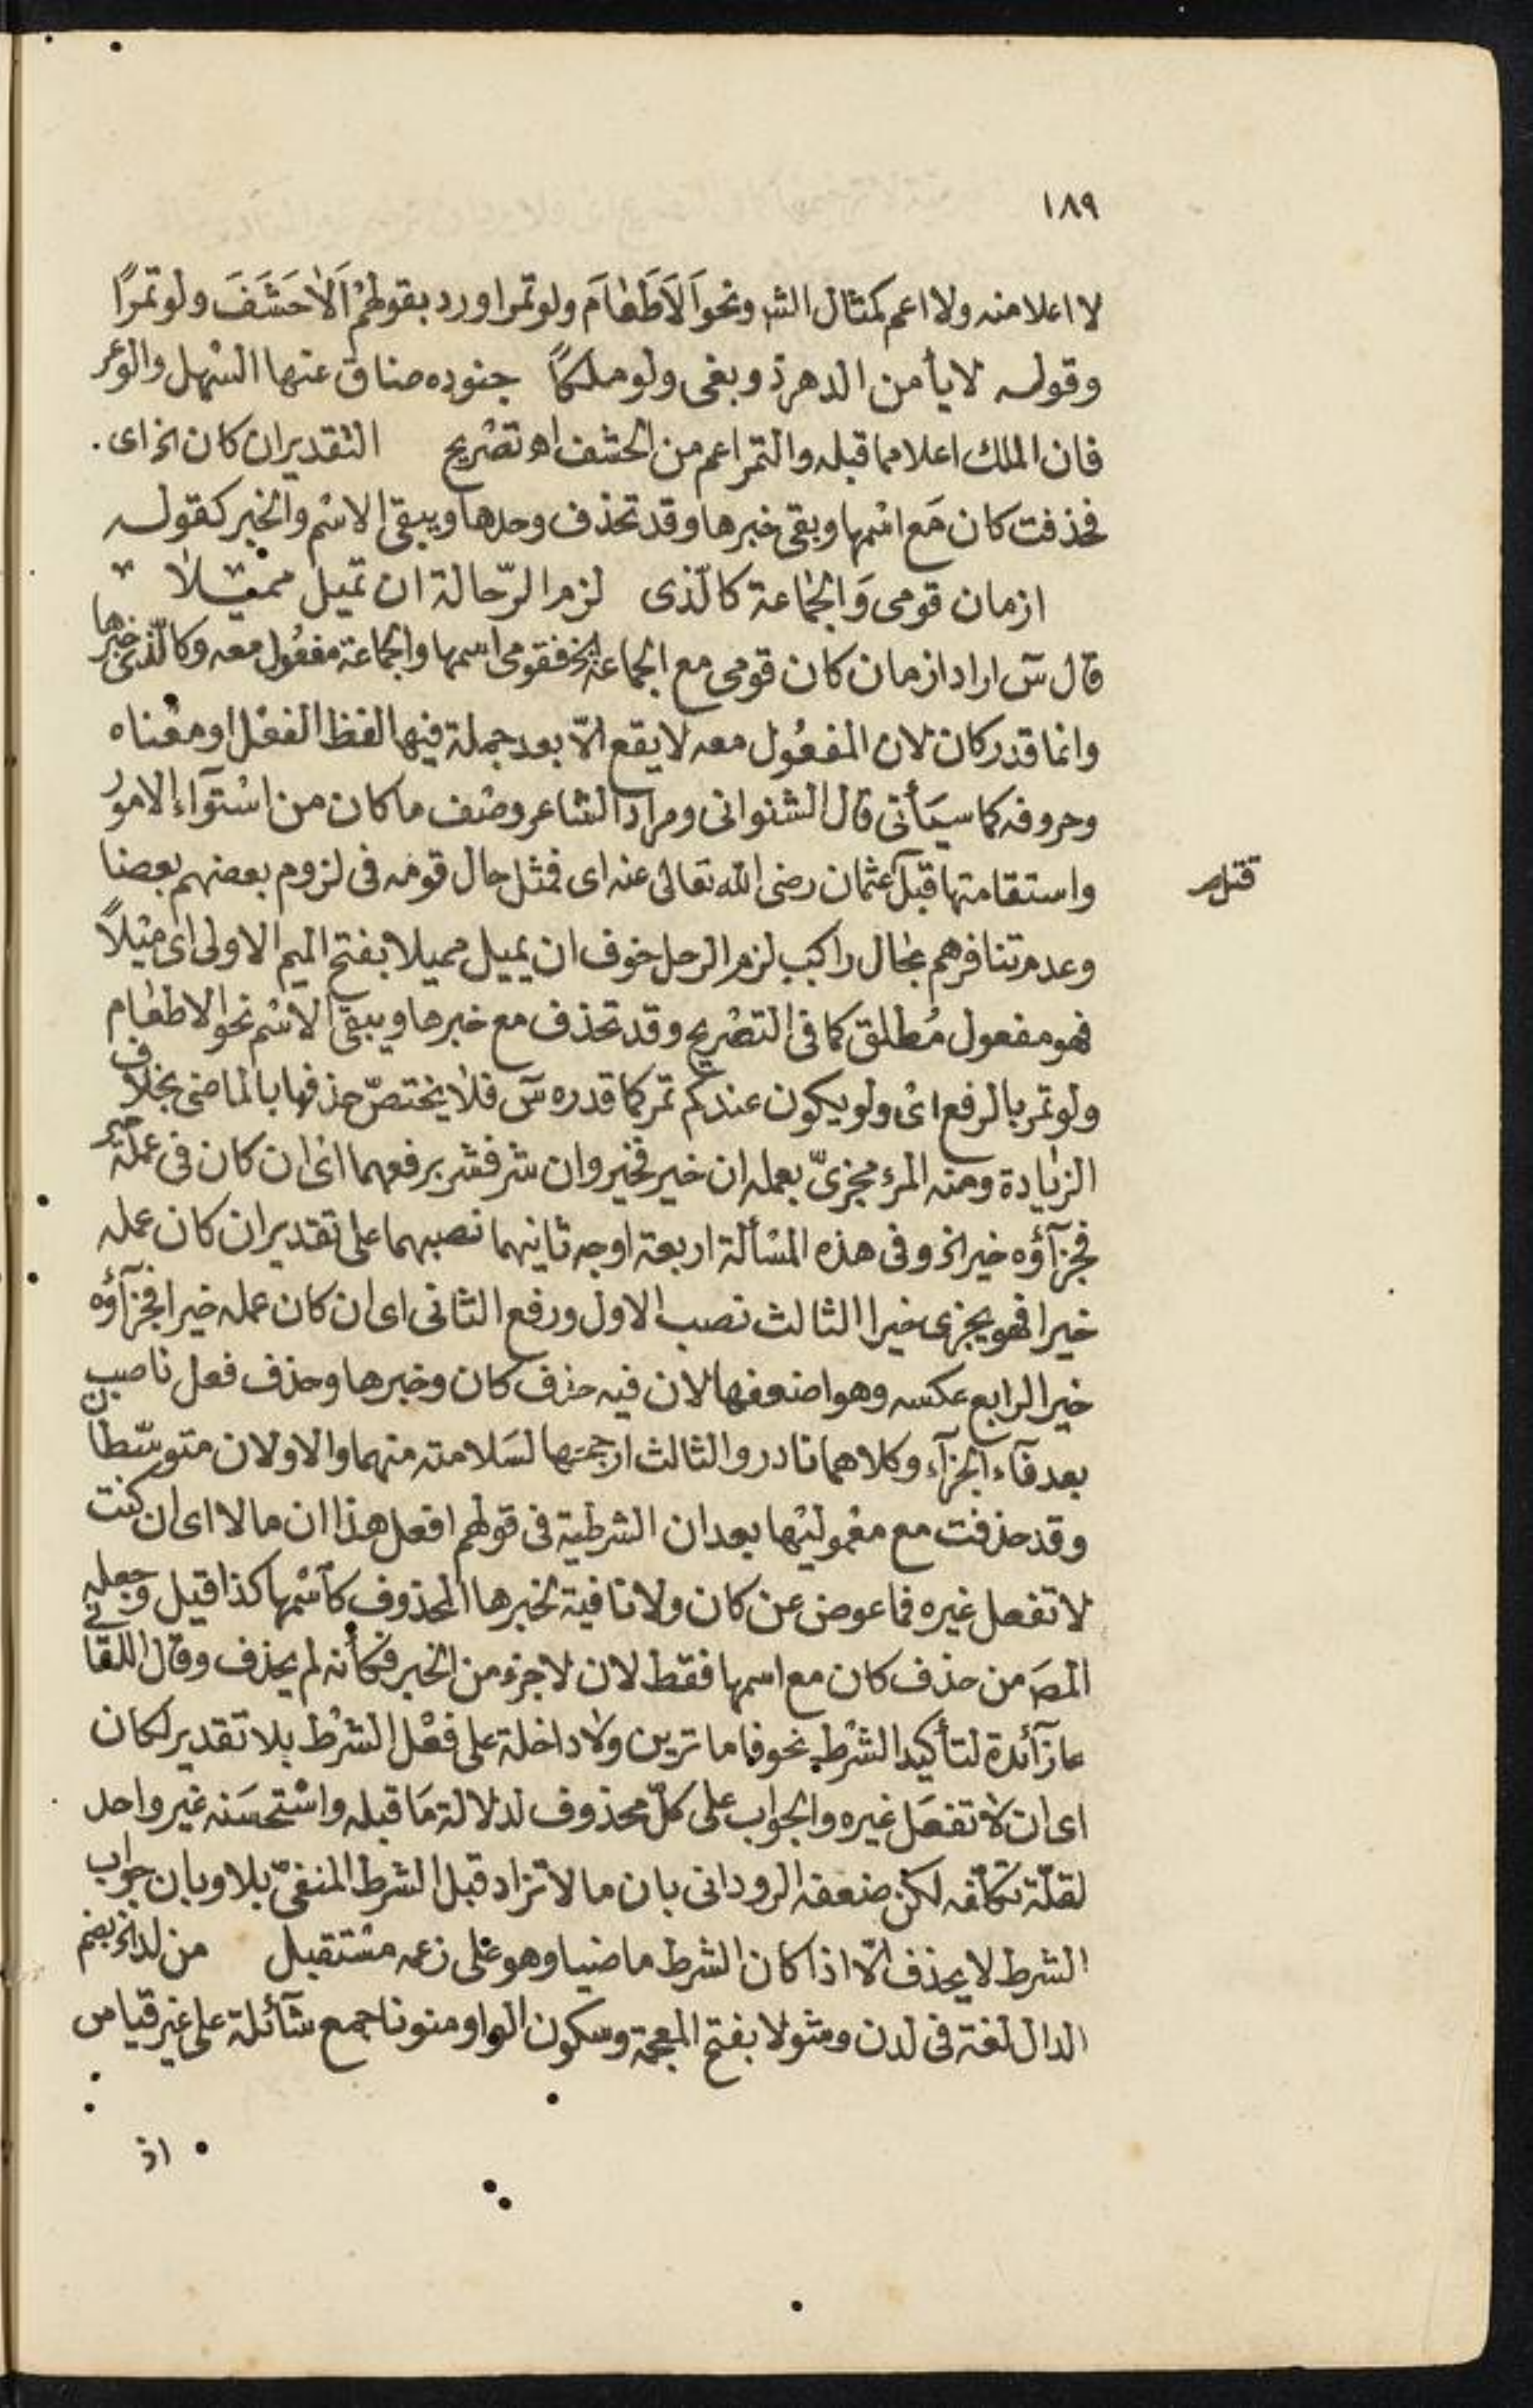 ١٨٩
لا اعلا منه ولا اعم كمثال الش ونحو اَلاَ طَعَامَ ولو تمرا ورد بقولهمْ اَلاَ حَشَفَ ولو تمرًا
وقوله لا يأمن الدهر ذو بغى ولو ملكًا جنوده ضاق عنها السّهل والوعر
فان الملك اعلا مما قبله والتمر اعم من الحشف اه تصريح التقدير ان كان الخ اى .
فحذفت كان مَع اسْمها وبقى خبرها وقد تحذف وحدها ويبقى الاسْم والخبر كقوله
ازمان قومى وَالجماعة كالّذى لزم الرّحالة ان تميل مميلا
قال سٓ اراد ازمان كان قومى مع الجماعة الخ فقومى اسمها والجماعة مفعُول معه وكالّذى خبرها
وانما قدر كان لان المفعُول معه لا يقع الّا بعد جملة فيها لفظ الفعْل او معْناه
وحروفه كما سيَأتى قال الشنوانى ومراد الشاعر وصْف ما كان من اسْتوآء الامورُ
واستقامتها قبل عثمان رضى الله تعالى عنه اى فمثل حال قومه فى لزوم بعضهم بعضا
قتل صح
وعدم تنافرهم بحال راكب لزم الرحل خوف ان يميل مميلا بفتح الميم الاولى اى ميْلاً
فهو مفعول مُطلق كما فى التصْريح وقد تحذف مع خبرها ويبقى الاسْم نحو الا طعام
ولو تمر بالرفع اىْ ولو يكون عندكم تمر كما قدره سٓ فلا يختصّ حذفها بالماضى بخلاف
الزيادة ومنه المرء مجزىّ بعمله ان خير فخير وان شر فشر برفعهما اى ان كان فى عمله خير
فجزآؤه خير الخ وفى هذه المسْألة اربعة اوجه ثانيهما نصبهما على تقدير ان كان عمله
خيرا فهو يجزى خيرا الثالث نصب الاول ورفع الثانى اى ان كان عمله خيرا فجزآؤه
خير الرابع عكسه وهو اضعفها لان فيه حذف كان وخبرها وحذف فعل ناصب
بعد فآء الجزآء وكلاهما نادر والثالث ارجحها لسَلامته منهما والاولان متوسّطان
وقد حذفت مع معْموليْها بعد ان الشرطية فى قولهم افعل هذا ان ما لا اى ان كنت
لا تفعل غيره فما عوض عن كان ولا نافية لخبرها المحذوف كاسْمها كذا قيل وجعله
المصَ من حذف كان مع اسمها فقط لان لا جزء من الخبر فكأنه لم يحذف وقال اللقانى
ما زآئدة لتأكيد الشرْط نحو فاما ترين ولا داخلة على فعْل الشرْط بلا تقدير لكان
اى ان لا تفعَل غيره والجواب على كلّ محذوف لدلالة مَا قبله واسْتحسَنه غير واحد
لقلّة تكلّفه لكن ضعفه الرودانى بان ما لا تزاد قبل الشرط المنفىّ بلا وبان جواب
الشرط لا يحذف الّا اذا كان الشرط ماضيا وهو على زعمه مسْتقبل من لد الخ بضم
الدال لغة فى لدن وشولا بفتح المعجمة وسكون الواو منونا جمع شآئلة على غير قياس
اذ